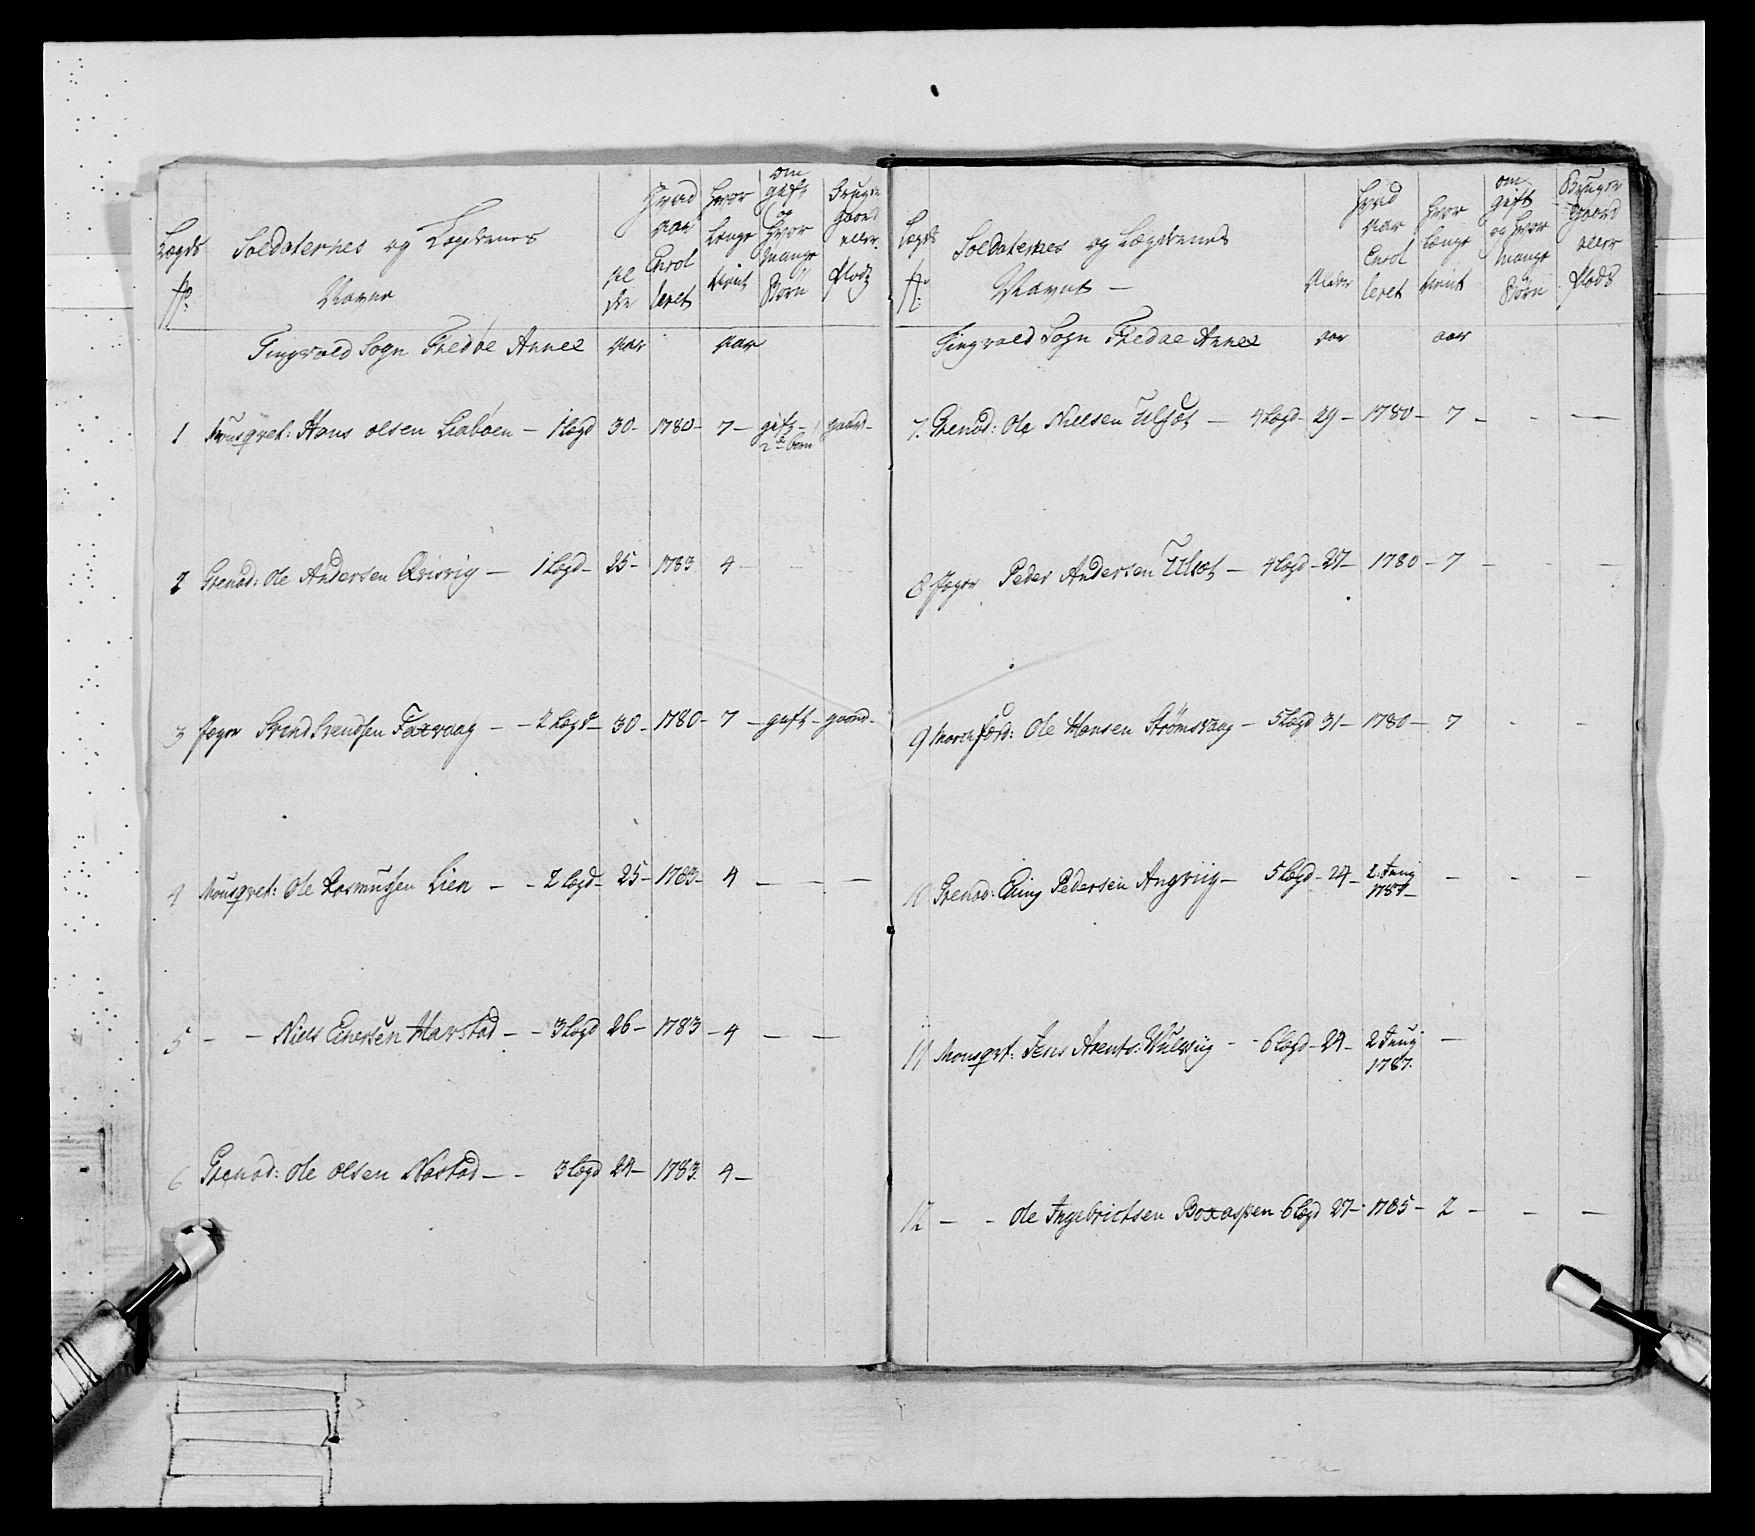 Lægds
No
Soldaternes og Lægdernes
Navne
Al
der
Hvad
aar
Enrol
leret
Hvor
længe
tient
om
gift
og
hvor
mange
Børn
Bruger
gaard
eller
Plads
Tingvold Sogn Thedøe Annex aar aar
1 Musqvet: Hans olsen Liabøen — 1 Lægd 30- 1780- 7- gift- gaard-
2de børn
2 Grenad: Ole Andersen Qvisvig — 1 Lægd- 25- 1783 4 —
3 Jæger Svend Svendsen Faxvaag — - 2 Lægd- 30- 1780- 7 - gift- gaard-
4 Mousqvet: Ole Rasmussen Lien - - 2 Lægd- 25- 1783- 4 — — —
5 - - Niels Einersen Harstad - - 3 Lægd 26- 1783- 4 — —
6 Grenad: Ole olsen Nastad - - 3 Lægd 24- 1783. 4 -
Lægds
No
Soldaternes og Lægdernes
Navne —
Alder
Hvad
aar
Enrol
leret
Hvor
længe
tient
om
gift
og hvor
mange
Børn
Bruger
gaard
eller
Plads
Tingvold Sogn Thedøe Annex aar aar
7. Grenad: Ole Nielsen Ulset — 4 Lægd- 29- 1780- 7 - - —
8 Jæger Peder Andersen Ulset — 4 Lægd- 27- 1780- 7 - - -
9 Ole Hansen Strømsvaag - 5 Lægd 31- 1780- 7 - -
10 Grenad: Eling Pedersen Angviig- 5 Lægd- 24- 2 Juny - - -
1787-
11 Mousqvt: Jens Arents: Wulvig - - 6 Lægd- 24- 2 Juny —
1787.
12 — - Ole Ingebrictsen Boxaspen 6 Lægd 27- 1785- 2 - - —